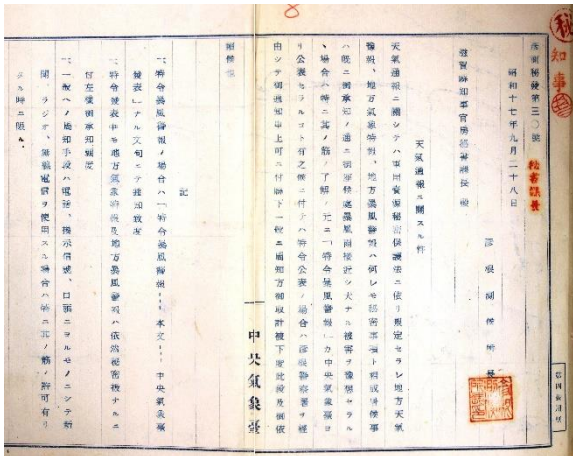 秘
知事
彦測秘發第三〇號
秘書課長
昭和十七年九月二十八日
彦根測候所長
滋賀縣知事官房秘書課長 殿
天氣通報ニ關スル件
天氣通報ニ關シテハ軍用資源秘密保護法ニ依リ規定セラレ地方天氣
豫報、地方氣象特報、地方暴風警報ハ何レモ秘密事項ト相成居候事
ハ既ニ御承知ノ通ニ御座候處暴風雨接近シ大ナル被害ヲ豫想セラル
ヽ場合ハ特ニ其ノ筋ノ了解ノ元ニ「特令暴風警報」カ中央氣象臺ヨ
リ公表セラルヽコト有之候ニ付テハ特令公表ノ場合ハ彦根警察署ヲ經
由シテ御通知申上可ニ付縣下一般ニ周知方御取計被下度此段及御依
頼候也
中央氣象臺
記
一、特令暴風警報ノ場合ハ「特令暴風警報……本文……中央氣象臺
發表」ナル文句ニテ通知致ス
一、特令發表中モ地方氣象特報及地方暴風警報ハ依然秘密扱ナルニ
付左樣御承知願度
一、一般ヘノ周知手段ハ電話、揭示信號、口頭ニヨルモノニシテ新
聞、ラジオ、無線電信ヲ使用スル場合ハ特ニ其ノ筋ノ許可有リ
タル時ニ限ル。